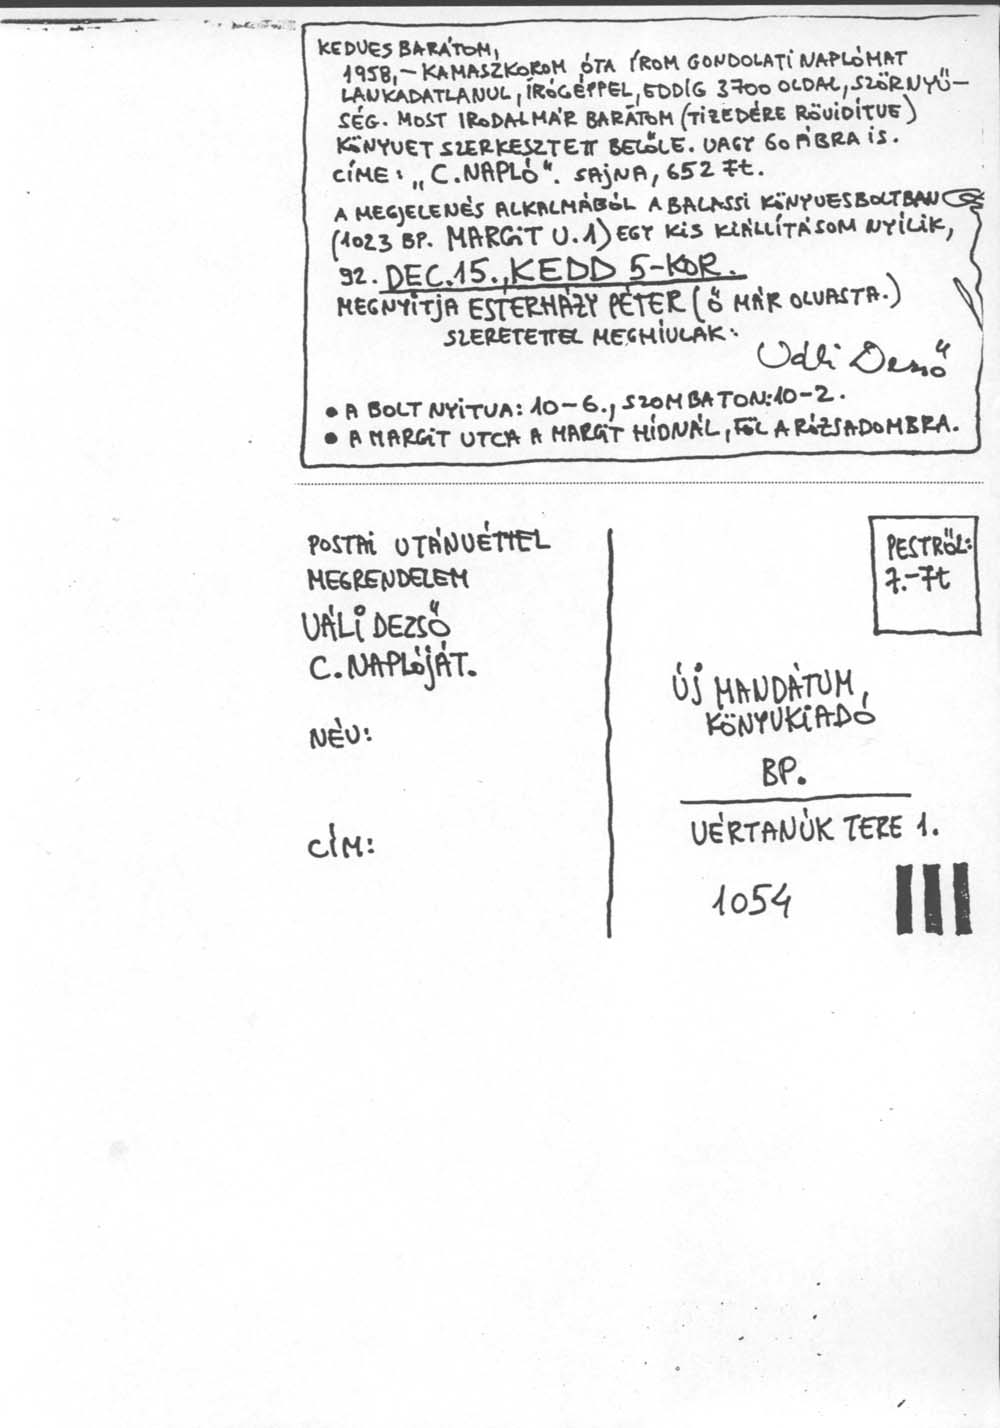 KEDVES BARÁTOM,
1958,- KAMASZKOROM ÓTA ÍROM GONDOLATI NAPLÓMAT
LANKADATLANUL, ÍRÓGÉPPEL, EDDIG 3700 OLDAL, SZÖRNYŰ-
SÉG. MOST IRODALMÁR BARÁTOM (TIZEDÉRE RÖVIDÍTVE)
KÖNYVET SZERKESZTETT BELŐLE. VAGY 60 ÁBRA IS.
CÍME: „C. NAPLÓ". SAJNA, 652 Ft.
A MEGJELENÉS ALKALMÁBÓL A BALASSI KÖNYVESBOLTBAN
(1023 BP. MARGIT U. 1) EGY KIS KIÁLLÍTÁSOM NYÍLIK,
92. DEC. 15., KEDD 5-KOR.
MEGNYITJA ESTERHÁZY PÉTER (Ő MÁR OLVASTA.)
SZERETETTEL MEGHÍVLAK:
Váli Dezső
• A BOLT NYITVA: 10-6., SZOMBATON: 10-2.
• A MARGIT UTCA A MARGIT HÍDNÁL, FÖL A RÓZSADOMBRA.
POSTAI UTÁNVÉTTEL
MEGRENDELEM
VÁLI DEZSŐ
C. NAPLÓJÁT.
NÉV:
CÍM:
PESTRŐL:
7.- Ft
ÚJ MANDÁTUM,
KÖNYVKIADÓ
BP.
VÉRTANÚK TERE 1.
1054